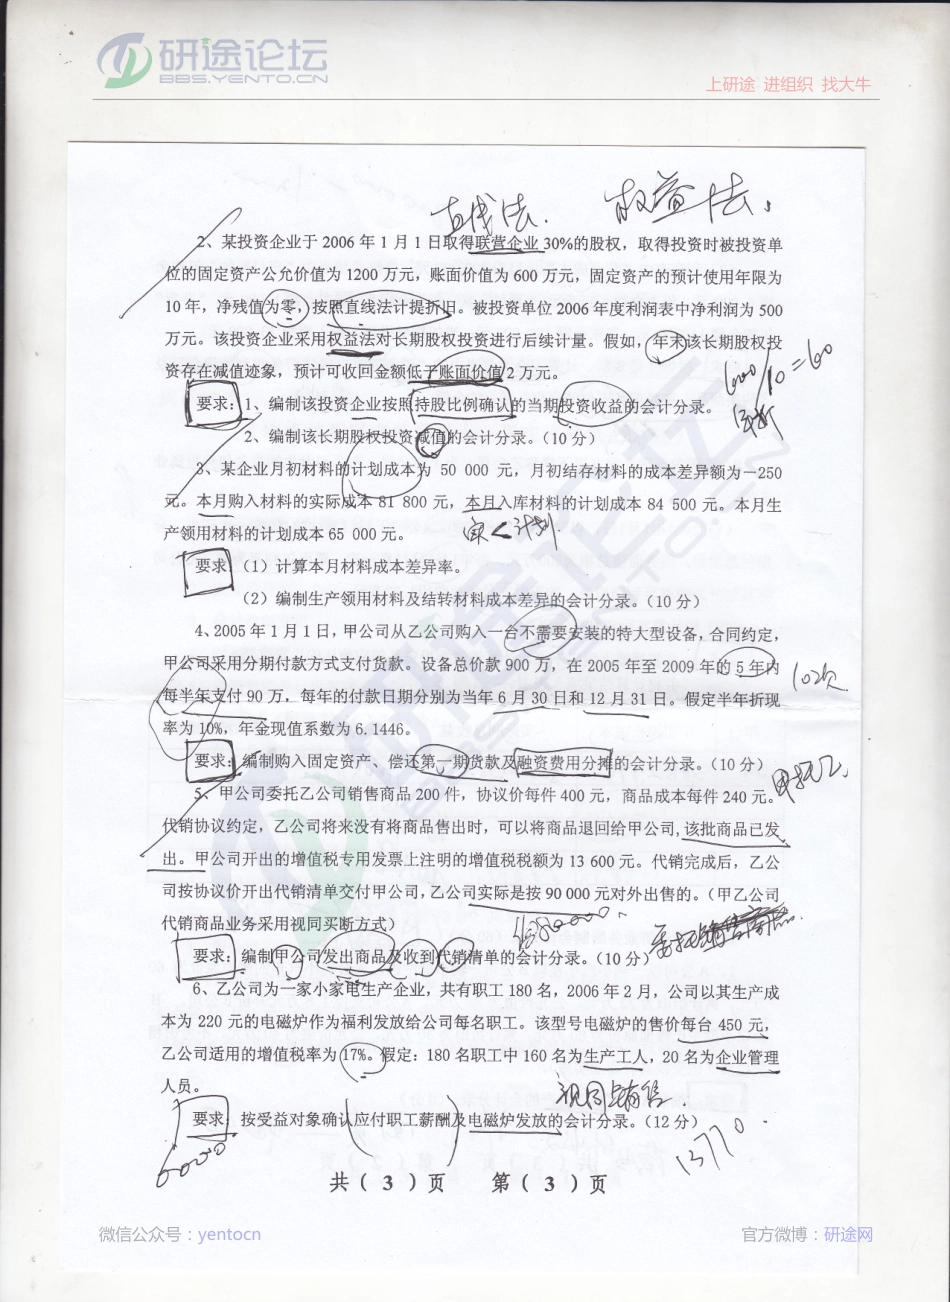 研途论坛
BBS.YENTO.CN
上研途 进组织 找大牛
直线法. 权益法.
2、某投资企业于 2006 年 1 月 1 日取得联营企业 30%的股权，取得投资时被投资单
位的固定资产公允价值为 1200 万元，账面价值为 600 万元，固定资产的预计使用年限为
10 年，净残值为零，按照直线法计提折旧。被投资单位 2006 年度利润表中净利润为 500
万元。该投资企业采用权益法对长期股权投资进行后续计量。假如，年末该长期股权投
资存在减值迹象，预计可收回金额低于账面价值 2 万元。
600/10=60
要求：1、编制该投资企业按照持股比例确认的当期投资收益的会计分录。
2、编制该长期股权投资减值的会计分录。（10 分）
3、某企业月初材料的计划成本为 50 000 元，月初结存材料的成本差异额为－250
元。本月购入材料的实际成本 81 800 元，本月入库材料的计划成本 84 500 元。本月生
产领用材料的计划成本 65 000 元。
实<计划
要求（1）计算本月材料成本差异率。
（2）编制生产领用材料及结转材料成本差异的会计分录。（10 分）
4、2005 年 1 月 1 日，甲公司从乙公司购入一台不需要安装的特大型设备，合同约定，
甲公司采用分期付款方式支付货款。设备总价款 900 万，在 2005 年至 2009 年的 5 年内
10次
每半年支付 90 万，每年的付款日期分别为当年 6 月 30 日和 12 月 31 日。假定半年折现
率为 10%，年金现值系数为 6.1446。
要求：编制购入固定资产、偿还第一期货款及融资费用分摊的会计分录。（10 分）
甲托乙
5、甲公司委托乙公司销售商品 200 件，协议价每件 400 元，商品成本每件 240 元。
代销协议约定，乙公司将来没有将商品售出时，可以将商品退回给甲公司，该批商品已发
出。甲公司开出的增值税专用发票上注明的增值税税额为 13 600 元。代销完成后，乙公
司按协议价开出代销清单交付甲公司，乙公司实际是按 90 000 元对外出售的。（甲乙公司
代销商品业务采用视同买断方式）
要求：编制甲公司发出商品及收到代销清单的会计分录。（10 分）
6、乙公司为一家小家电生产企业，共有职工 180 名，2006 年 2 月，公司以其生产成
本为 220 元的电磁炉作为福利发放给公司每名职工。该型号电磁炉的售价每台 450 元，
乙公司适用的增值税率为 17%。假定：180 名职工中 160 名为生产工人，20 名为企业管理
人员。
视同销售.
要求：按受益对象确认应付职工薪酬及电磁炉发放的会计分录。（12 分）
13770.
共（ 3 ）页 第（ 3 ）页
微信公众号：yentocn
官方微博：研途网